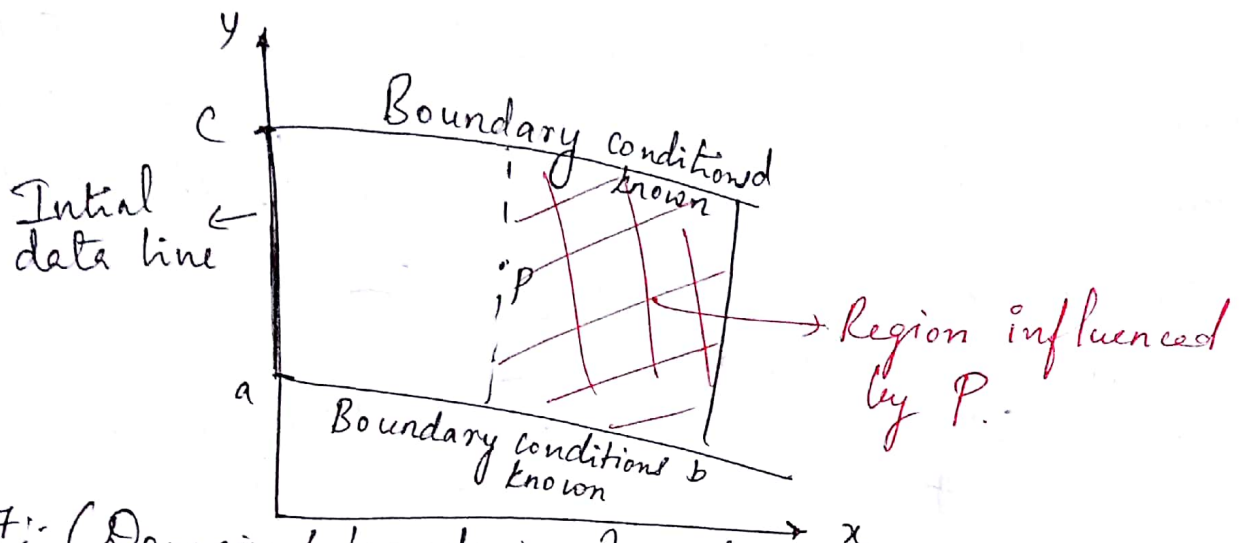 y
C
Boundary conditions d
known
Intial
data line
P
Region influenced
by P.
a
Boundary conditions b
known
x
7:- (Domain